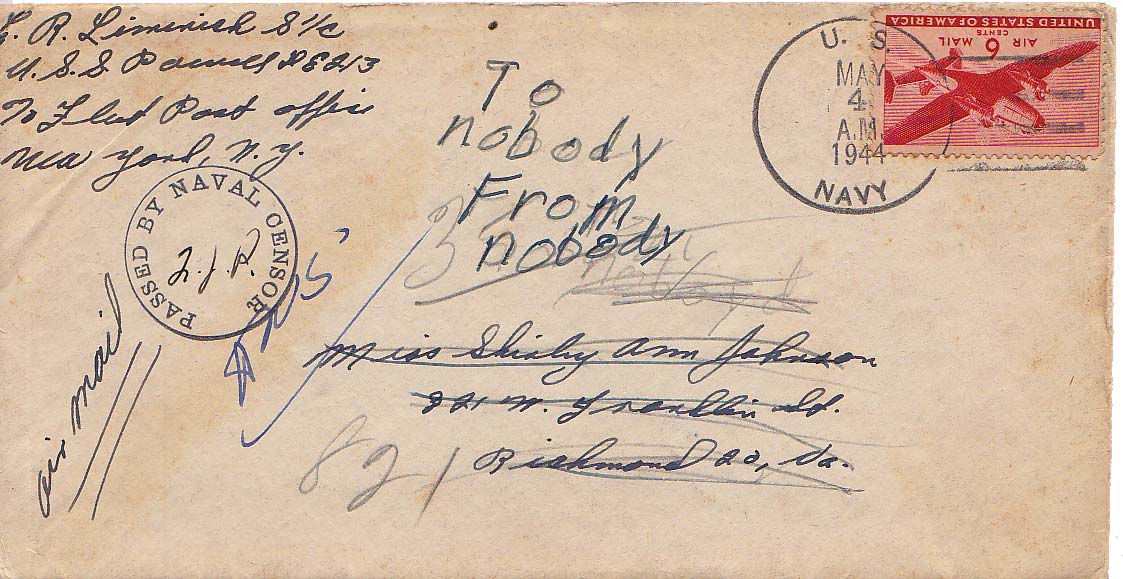 R. Limerick S1/c
U.S.S. Powell DE213
To Fleet Post office
New York, N.Y.
PASSED BY NAVAL CENSOR
air mail
To
nobody
From
nobody
Miss Shirley Ann Johnson
821 W. Franklin St.
Richmond 20, Va.
821
U. S.
MAY
4
A.M.
1944
NAVY
UNITED STATES OF AMERICA
6
CENTS
AIR MAIL